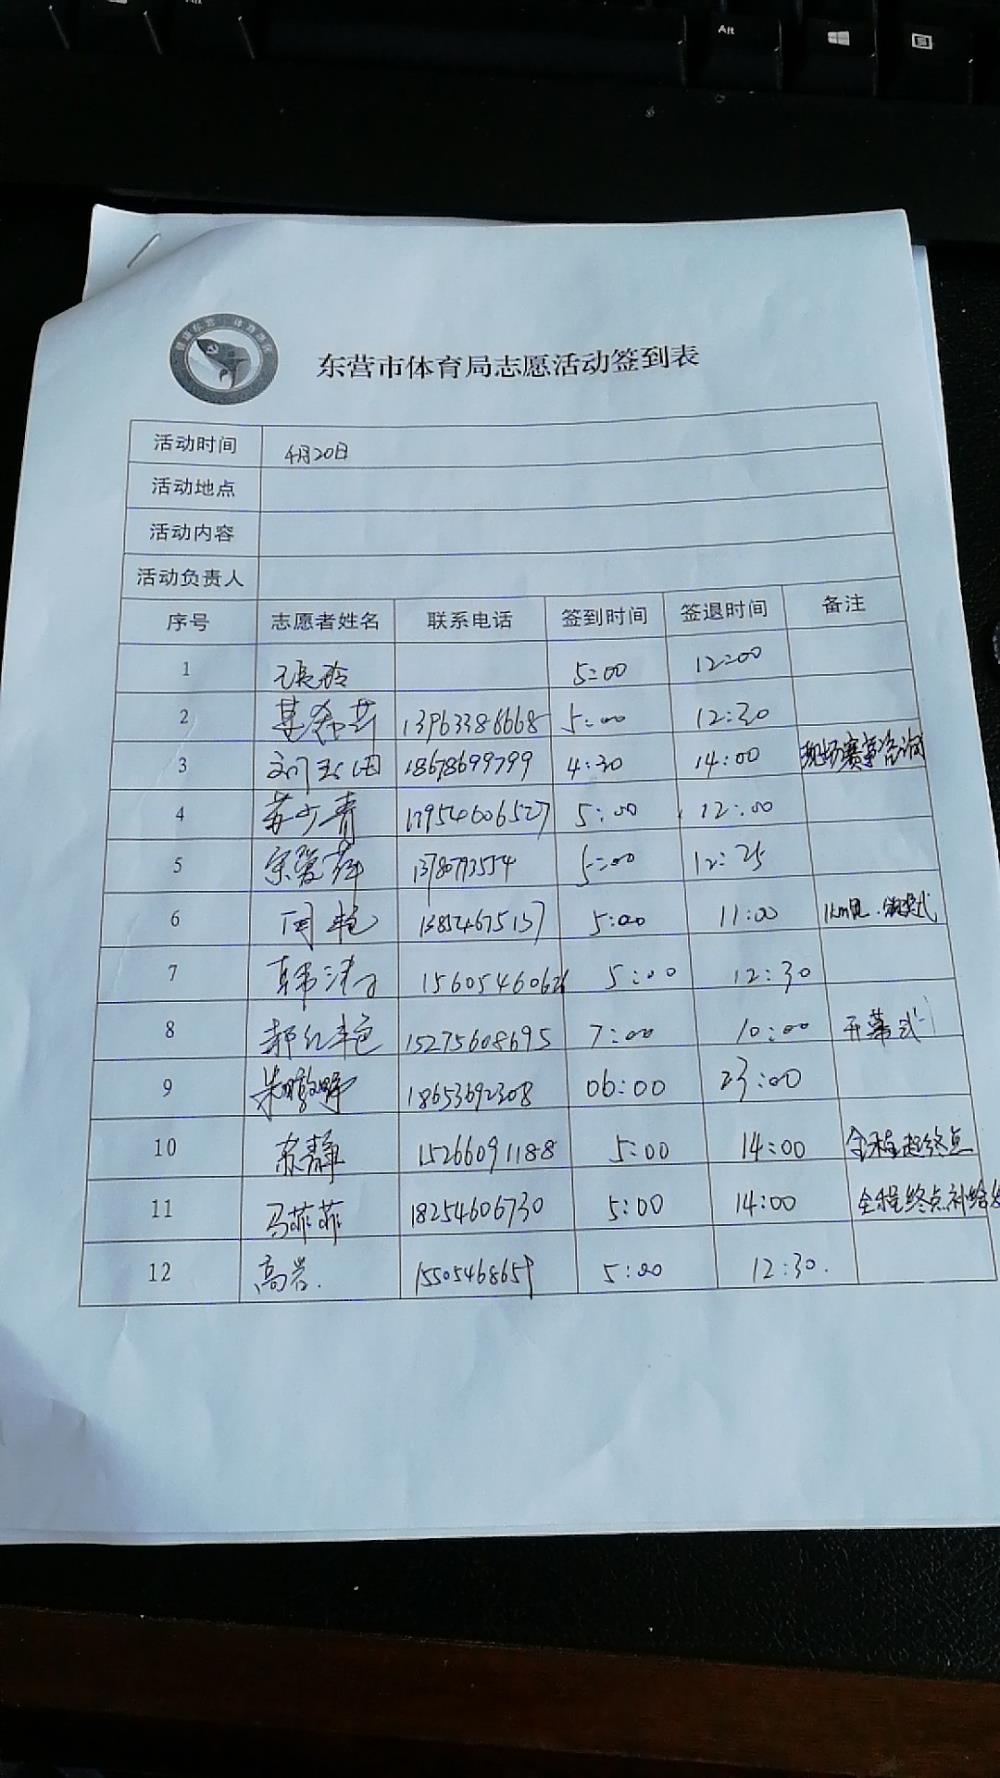 Alt
东营市体育局志愿活动签到表
活动时间 4月20日
活动地点
活动内容
活动负责人
序号 志愿者姓名 联系电话 签到时间 签退时间 备注
1 5:00 12:00
2 13963388668 5:00 12:30
3 18678699799 4:30 14:00 现场赛事咨询
4 苏少青 17954606527 5:00 12:00
5 宋爱萍 5:00 12:25
6 周艳 13854675137 5:00 11:00
7 15605460626 5:00 12:30
8 郝红艳 15275608695 7:00 10:00 开幕式
9 18653692308 06:00 23:00
10 苏静 15266091188 5:00 14:00 全程起终点
11 马菲菲 18254606730 5:00 14:00 全程终点补给
12 高岩. 15505468659 5:00 12:30.